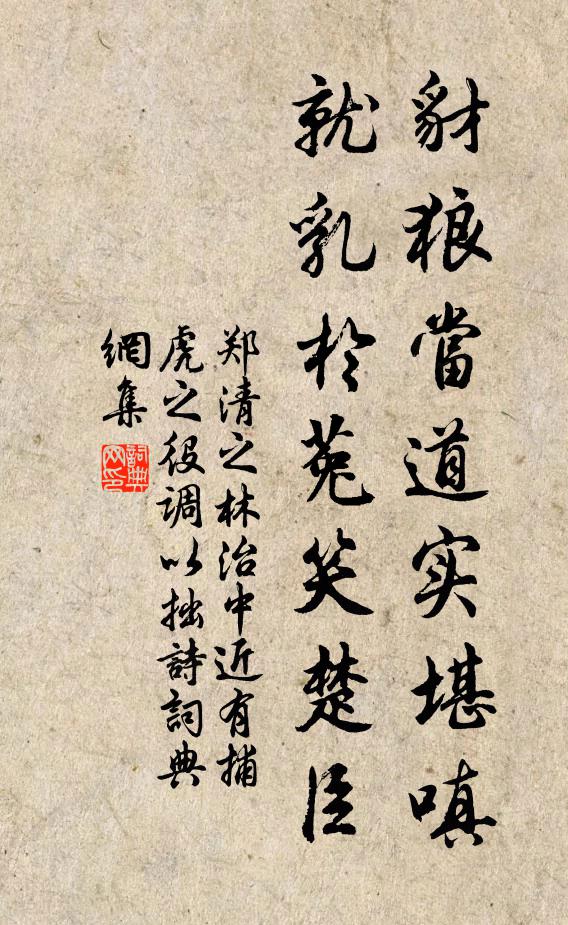 豺狼當道实堪嗔
就乳於菟笑楚臣
郑清之林治中近有捕
虎之役調以拙詩詞典
網集
詞典網印